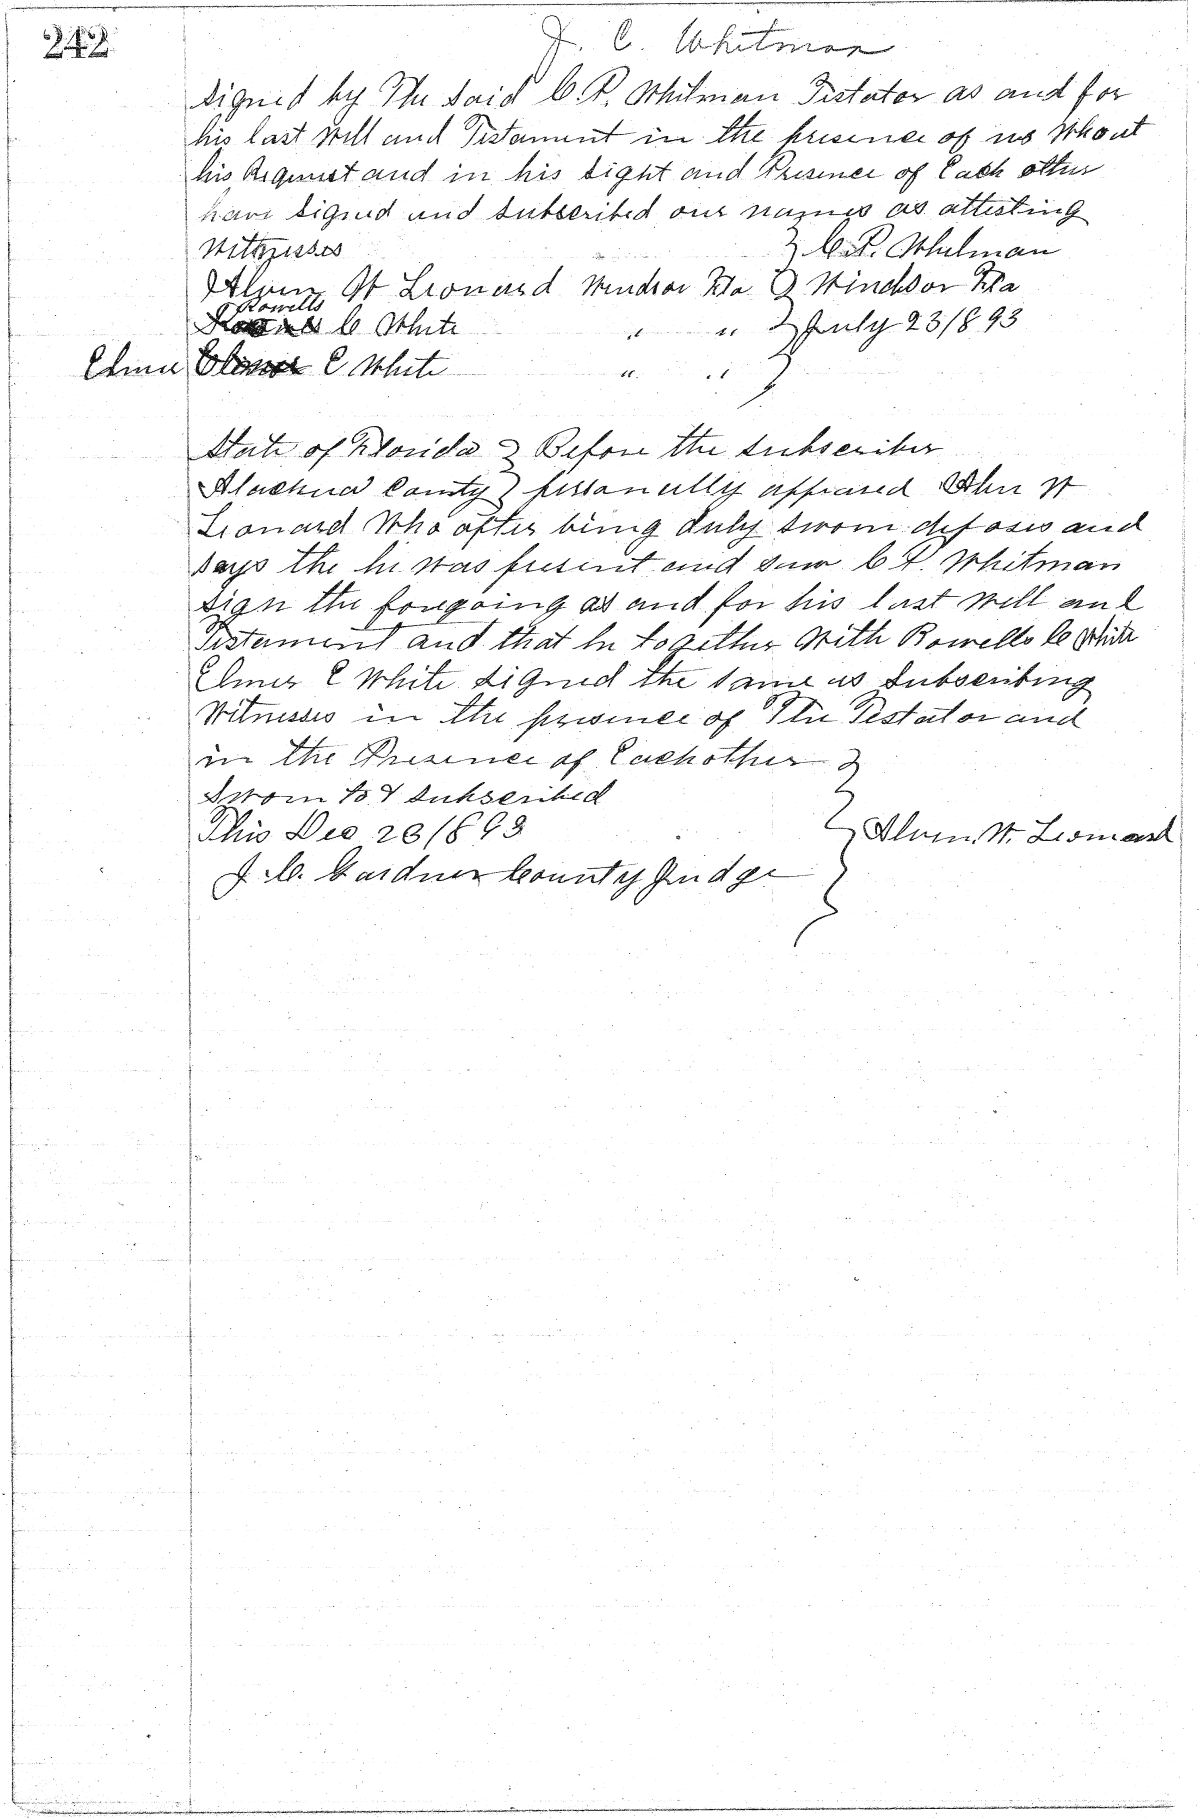 242
J. C. Whitman
Signed by The Said C. P. Whitman Testator as and for
his last Will and Testament in the presence of us Who at
his Request and in his Sight and Presence of Each other
have Signed and Subscribed our names as attesting
Witnesses } C. P. Whitman
Alven W Leonard Windsor Fla } Windsor Fla
Rowells
C White " " } July 23/893
Elmer E White " " }
State of Florida } Before the Subscriber
Alachua County } personally appeared Alven W
Leonard Who after being duly sworn deposes and
says the he was present and saw C P. Whitman
sign the foregoing as and for his last Will and
Testament and that he together With Rowells C White
Elmer E White signed the same as Subscribing
Witnesses in the presence of The Testator and
in the Presence of Each other }
Sworn to & Subscribed
This Dec 23/893 } Alven. W. Leonard
J. C. Gardner County Judge